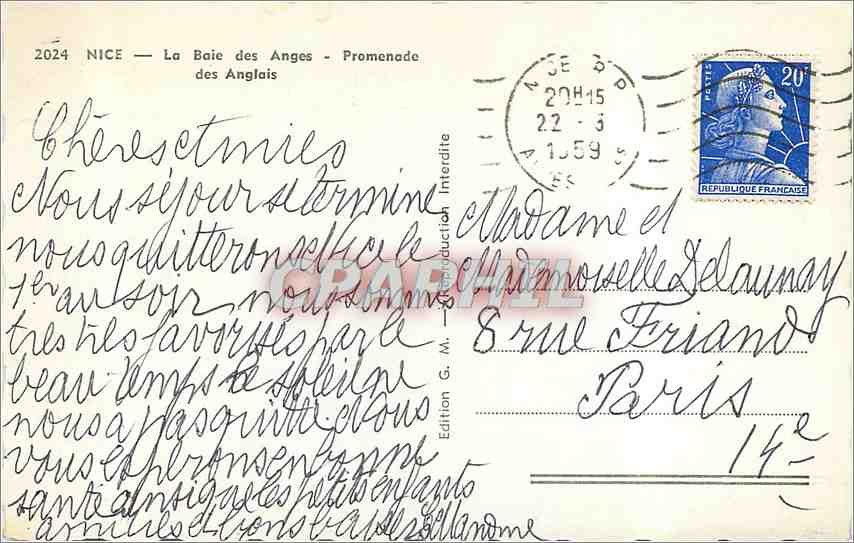 2024 NICE — La Baie des Anges - Promenade
des Anglais
Chères amies
Nous séjour se termine
nous quitterons Nice le
1er au soir nous sommes
très très favorisés par le
beau temps le soleil ne
nous a pas quitté. Nous
vous espérons en bonne
santé ainsi que les petits enfants
amitiés et bons baisers
Edition G. M. — Reproduction Interdite
NICE R P
20H15
22 - 3
1959
POSTES
20F
REPUBLIQUE FRANÇAISE
Madame et
Mademoiselle Delaunay
8 rue Friand
Paris
14e
CPAPHIL